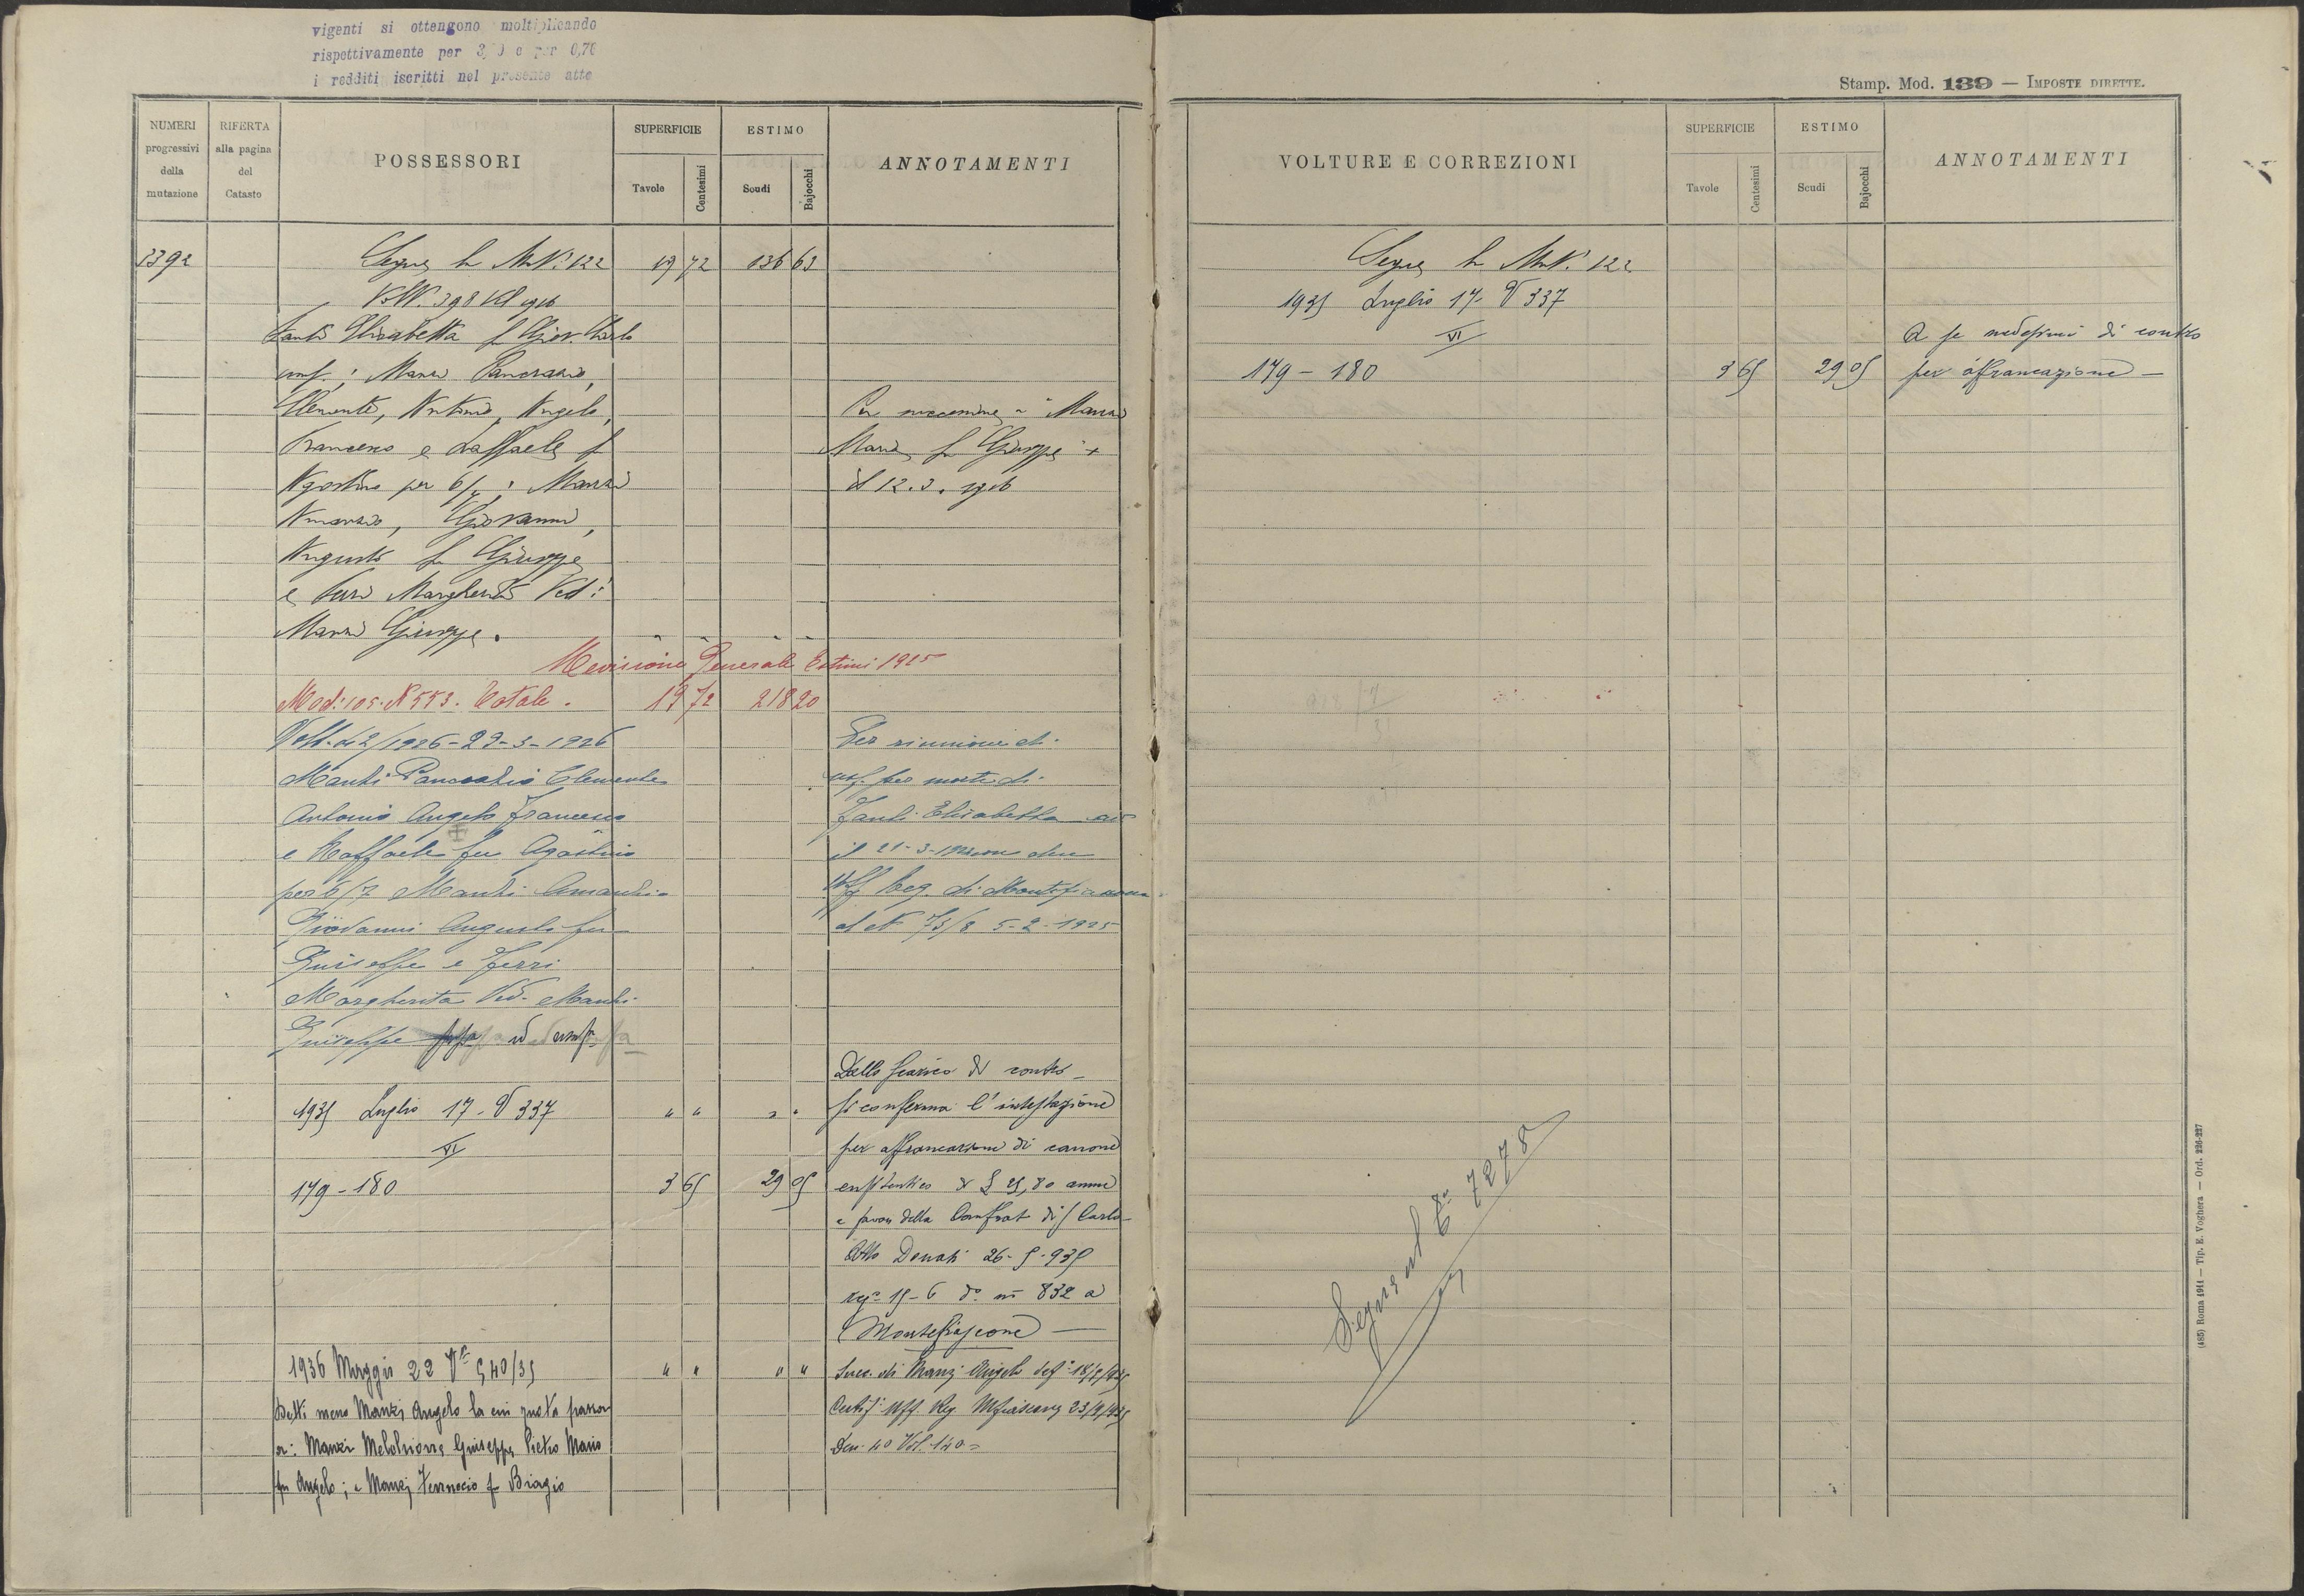 vigenti si ottengono moltiplicando
rispettivamente per 3, 0 e per 0,70
i redditi iscritti nel presente atto
NUMERI progressivi della mutazione
RIFERTA alla pagina del Catasto
POSSESSORI
SUPERFICIE
Tavole
Centesimi
ESTIMO
Scudi
Bajocchi
ANNOTAMENTI
3392 Segue la M.N. 122 19 72 136 63
Volt. 398 1916
Zanti Elisabetta fu Giov. Carlo
usuf.; Manzi Pancrazio,
Clemente, Antonio, Angelo, Per successione a Manzi
Francesco e Raffaele fu Maria fu Giuseppe +
Agostino per 6/7; Manzi il 12.3.1916
Amanzio, Giovanni,
Augusto fu Giuseppe
e Ferri Margherita Ved:
Manzi Giuseppe.
Revisione Generale Estimi 1925
Mod: 105. N 553. Totale. 19 72 218 20
Volt. 42/1926 - 29-3-1926 Per riunione di
Manzi Pancrazio Clemente usuf. per morte di
Antonio Angelo Francesco Zanti Elisabetta
e Raffaele fu Agostino il 21-3-
per 6/7 Manzi Amanzio Uff Reg. di Montefiascone
Giovanni Augusto fu al N 73/8 5-2-1925
Giuseppe e Ferri
Margherita Ved. Manzi
Giuseppe
Dallo scarico di contro
1935 Luglio 17 - V 337 " " " " si conferma l'intestazione
VI per affrancazione di canone
179 - 180 3 65 29 05 enfiteutico di £ 25,80 annue
a favore della Confrat di S Carlo
Atto Donati 26-5-935
reg° 15-6 d° n° 832 a
Montefiascone
1936 Maggio 22 V 540/35 " " " " Succ. di Manzi Angelo
Detti meno Manzi Angelo la cui quota passa Certif Uff. Reg Mfiascone
a: Manzi Melchiorre Giuseppe Pietro Mario Den. 40 Vol. 140 =
fu Angelo; e Manzi Ferruccio fu Biagio
Stamp. Mod. 139 — IMPOSTE DIRETTE.
VOLTURE E CORREZIONI
SUPERFICIE
Tavole
Centesimi
ESTIMO
Scudi
Bajocchi
ANNOTAMENTI
Segue la M.N. 122
1935 Luglio 17 - V 337
VI A se medesimi di contro
179 - 180 3 65 29 05 per affrancazione —
Segue al 7278
(485) Roma 1911 — Tip. E. Voghera — Ord. 226-227